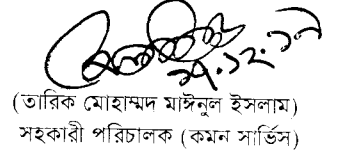 ২৭.১২.১৭
(তারিক মোহাম্মদ মাঈনুল ইসলাম)
সহকারী পরিচালক (কমন সার্ভিস)